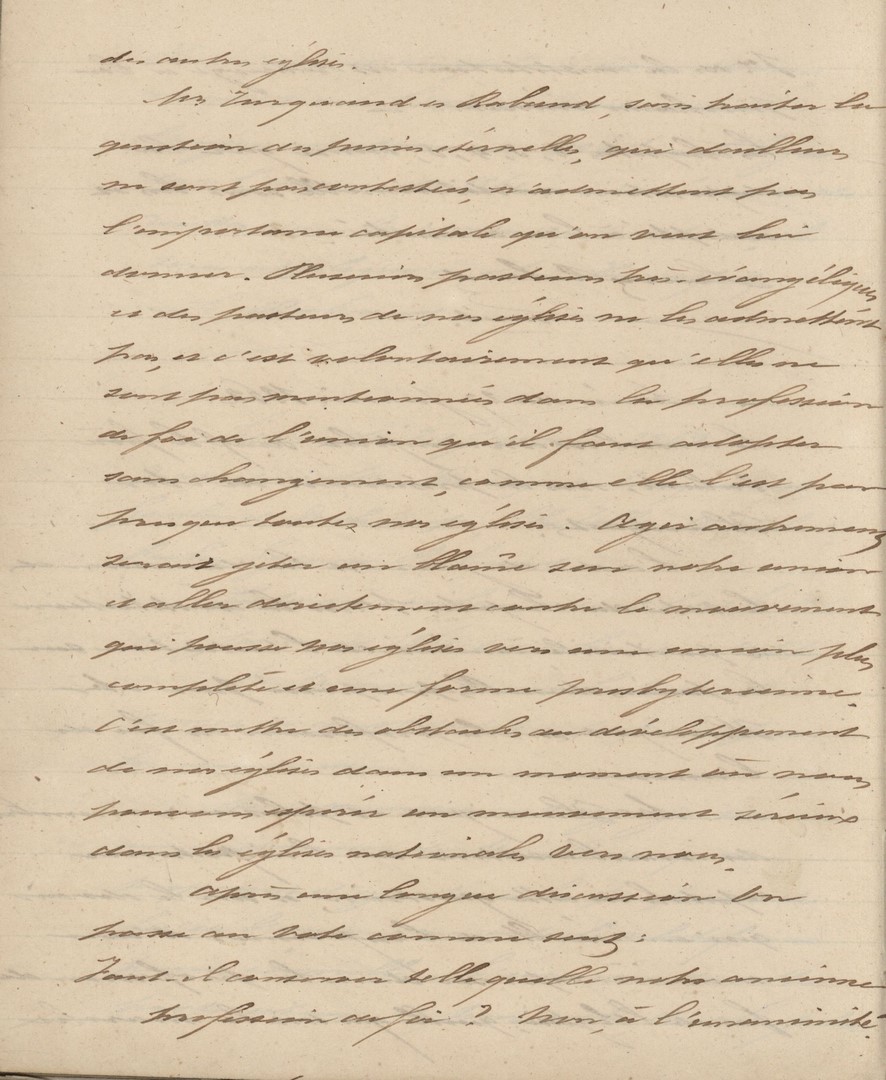 des autres églises.
Mrs Turquand et Rabaud, sans traiter la
question des peines éternelles, qui d'ailleurs
ne sont pas contestées, n'admettent pas
l'importance capitale qu'on veut lui
donner. Plusieurs pasteurs très-évangéliques
et des pasteurs de nos églises ne les admettent
pas, et c'est volontairement qu'elles ne
sont pas mentionnées dans la profession
de foi de l'union qu'il faut adopter
sans changement, comme elle l'est par
presque toutes nos églises. Agir autrement
serait jeter un blâme sur notre union
et aller directement contre le mouvement
qui pousse nos églises vers une union plus
complète et une forme presbytérienne.
C'est mettre des obstacles au développement
de nos églises dans un moment où nous
pouvons espérer un mouvement sérieux
dans les églises nationales vers nous.
Après une longue discussion on
passe au vote comme suit :
Faut-il conserver telle quelle notre ancienne
profession de foi ? Non, à l'unanimité.